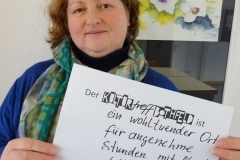 Der KULTurtreffGRÜNFELD ist
ein wohltuender Ort
für angenehme
Stunden mit